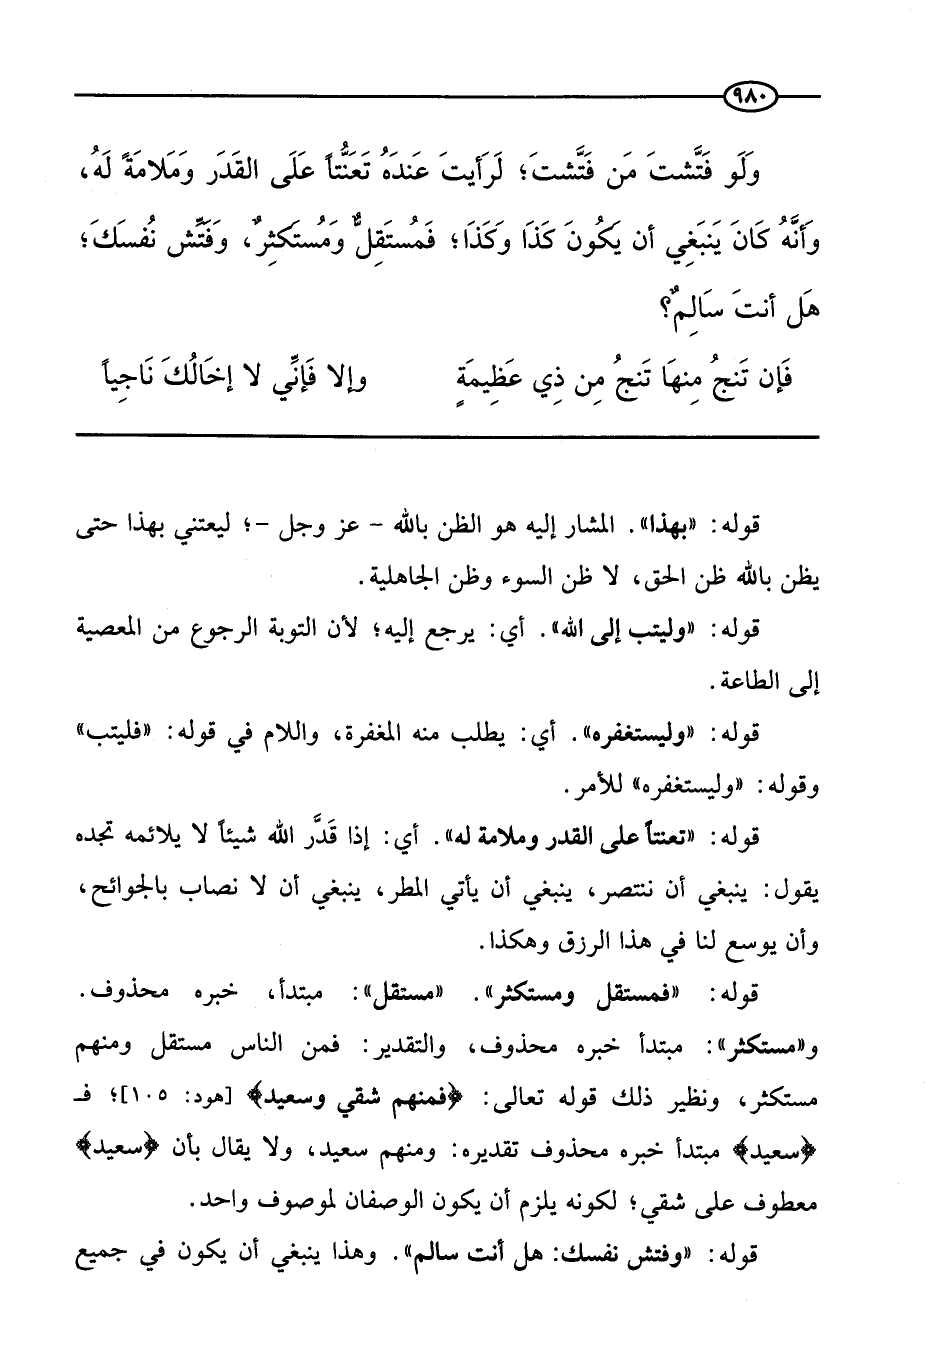 ٩٨٠
وَلَو فَتَّشتَ مَن فَتَّشتَ؛ لَرَأيتَ عَندَهُ تَعَنُّتاً عَلَى القَدَر وَمَلامَةً لَهُ،
وأَنَّهُ كَانَ يَنبَغِي أن يَكُونَ كَذَا وكَذَا؛ فَمُستَقِلٌّ وَمُستَكثِرٌ، وَفَتِّش نُفسَكَ؛
هَل أنتَ سَالِمٌ؟
فَإن تَنجُ مِنهَا تَنجُ مِن ذِي عَظِيمَةٍ وإلا فَإنِّي لا إخَالُكَ نَاجِياً
قوله: «بهذا». المشار إليه هو الظن بالله - عز وجل -؛ ليعتني بهذا حتى
يظن بالله ظن الحق، لا ظن السوء وظن الجاهلية.
قوله: «وليتب إلى الله». أي: يرجع إليه؛ لأن التوبة الرجوع من المعصية
إلى الطاعة.
قوله: «وليستغفره». أي: يطلب منه المغفرة، واللام في قوله: «فليتب»
وقوله: «وليستغفره» للأمر.
قوله: «تعنتاً على القدر وملامة له». أي: إذا قَدَّر الله شيئاً لا يلائمه تجده
يقول: ينبغي أن ننتصر، ينبغي أن يأتي المطر، ينبغي أن لا نصاب بالجوائح،
وأن يوسع لنا في هذا الرزق وهكذا.
قوله: «فمستقل ومستكثر». «مستقل»: مبتدأ، خبره محذوف.
و«مستكثر»: مبتدأ خبره محذوف، والتقدير: فمن الناس مستقل ومنهم
مستكثر، ونظير ذلك قوله تعالى: ﴿فمنهم شقي وسعيد﴾ [هود: ١٠٥]؛ فـ
﴿سعيد﴾ مبتدأ خبره محذوف تقديره: ومنهم سعيد، ولا يقال بأن ﴿سعيد﴾
معطوف على شقي؛ لكونه يلزم أن يكون الوصفان لموصوف واحد.
قوله: «وفتش نفسك: هل أنت سالم». وهذا ينبغي أن يكون في جميع